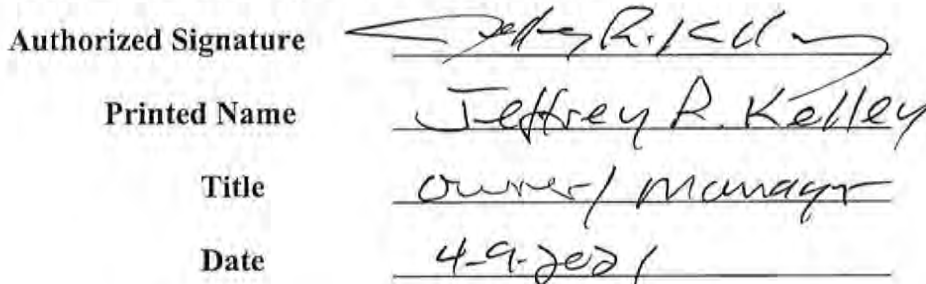 Authorized Signature Jeffrey R. Kelley
Printed Name Jeffrey R. Kelley
Title Owner/ Manager
Date 4-9-2021